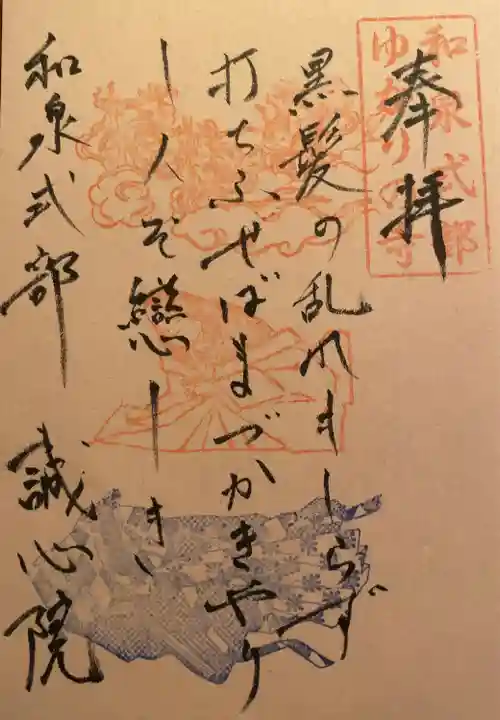 奉拝
和泉式部
ゆかりの寺
黒髪の乱れもしらず
打ちふせばまづかきやりし
人ぞ戀しき
和泉式部 誠心院